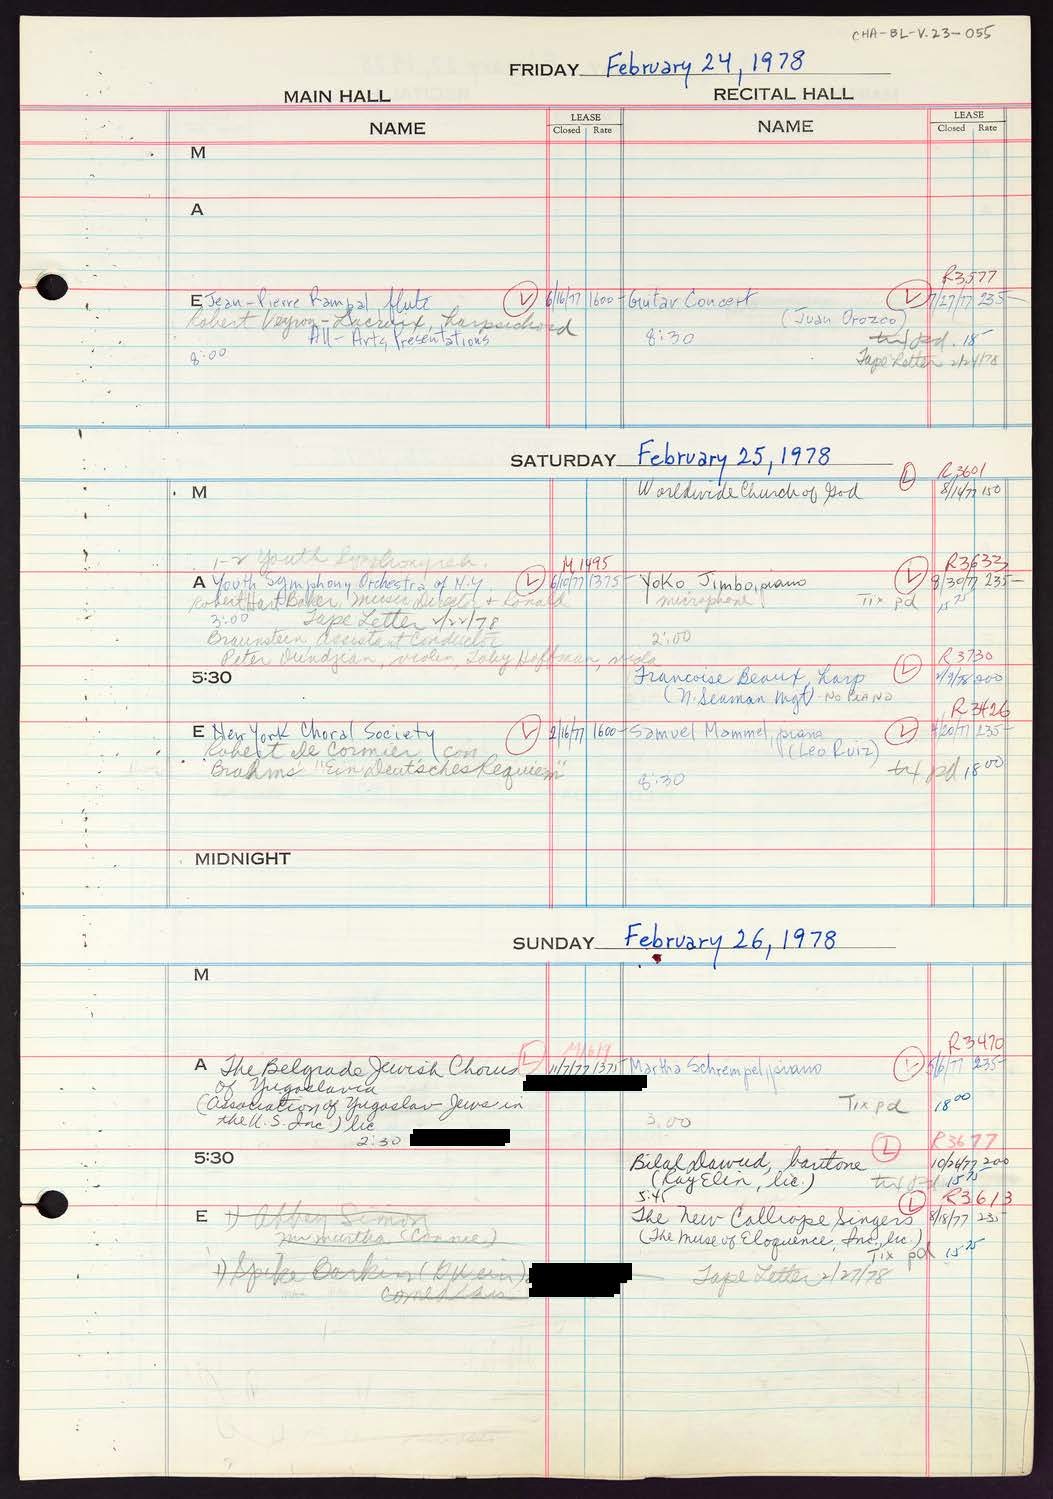 CHA-BL-V.23-055
FRIDAY February 24, 1978
MAIN HALL RECITAL HALL
NAME LEASE Closed Rate NAME LEASE Closed Rate
M
A
R3577
E Jean-Pierre Rampal flute L 6/16/77 1600- Guitar Concert L 7/27/77 235-
Robert Veyron-Lacroix, harpsichord (Juan Orozco)
All-Arts Presentations 8:30 pd. 18-
8:00 Tape Letter 2/24/78
SATURDAY February 25, 1978
R3601
M Worldwide Church of God L 8/14/77 150
1-2 Youth Symphony
M1495 R3633
A Youth Symphony Orchestra of N.Y. L 6/10/77 1375- Yoko Jimbo, piano L 9/30/77 235-
Robert Hart Baker, Music Director + Ronald microphone Tix pd 15 75
3:00 Tape Letter 2/22/78
Braunstein Assistant Conductor 2:00
Peter Oundjian, violin, Toby Hoffman, viola
R3730
5:30 Francoise Beaux, harp L 2/9/78 200
(N. Seaman Mgt) - NO PIANO
R3426
E New York Choral Society L 2/16/77 1600- Samuel Mammel, piano L 4/20/77 235-
Robert De Cormier, con (Leo Ruiz)
Brahms "Ein Deutsches Requiem" 8:30 tix pd 18 00
MIDNIGHT
SUNDAY February 26, 1978
M
M1619 R3470
A The Belgrade Jewish Chorus L 11/7/77 1371- Martha Schrempel, piano L 5/6/77 235-
of Yugoslavia
(Association of Yugoslav Jews in Tix pd 18 00
the U.S. Inc.) lic 3:00
2:30
R3677
5:30 Bilal Dawud, baritone L 10/26/77 200
(Ray Elin, lic.) tix pd 15 75
5:45 R3613
E 1) Abbey Simon The New Calliope Singers L 8/18/77 235-
(Connie) (The Muse of Eloquence, Inc., lic.)
Tix pd 15 75
1) Spike Tape Letter 2/27/78